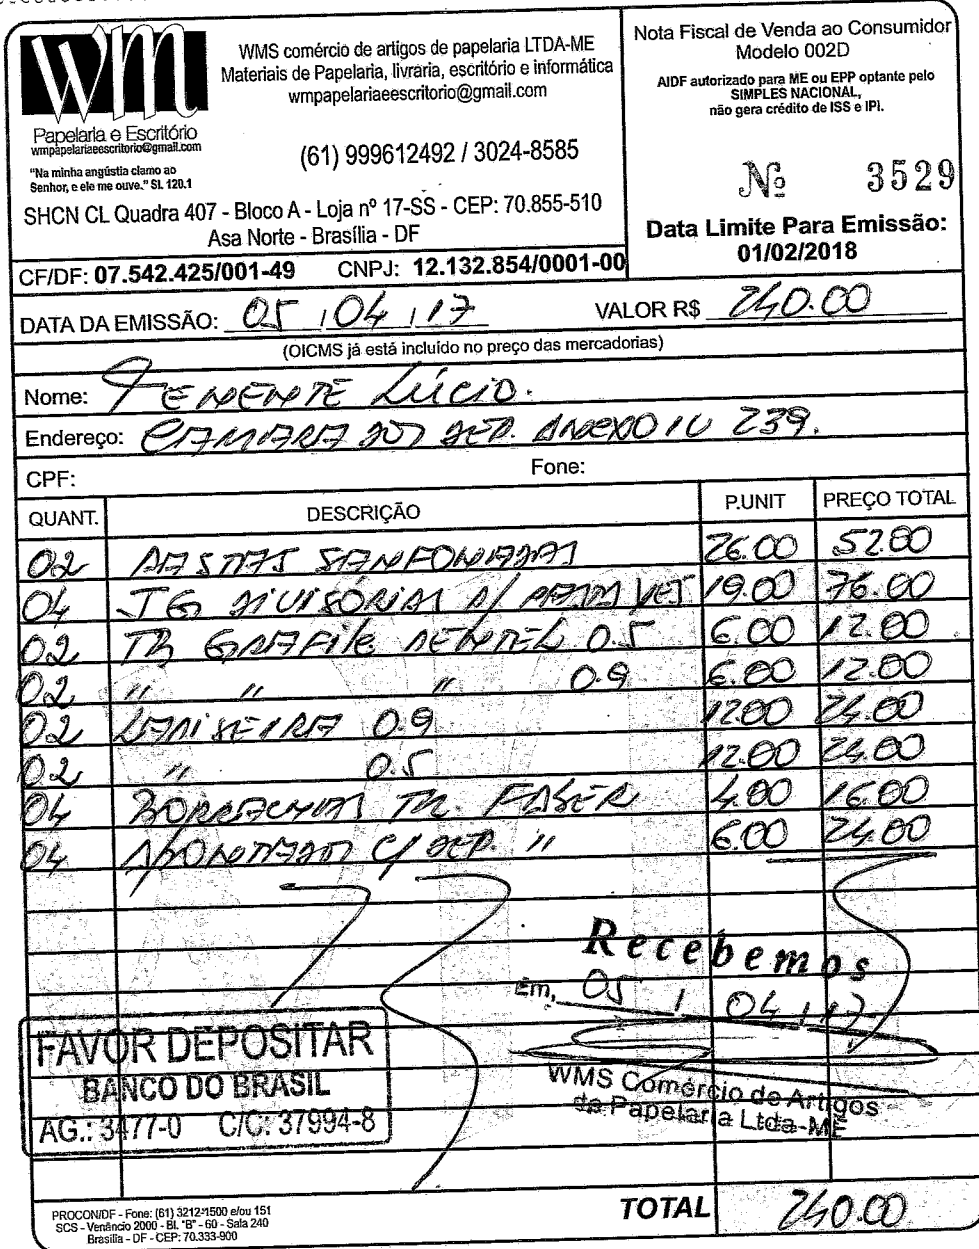 wm
Papelaria e Escritório
wmpapelariaeescritorio@gmail.com
"Na minha angústia clamo ao
Senhor, e ele me ouve." Sl. 120.1
WMS comércio de artigos de papelaria LTDA-ME
Materiais de Papelaria, livraria, escritório e informática
wmpapelariaeescritorio@gmail.com
(61) 999612492 / 3024-8585
SHCN CL Quadra 407 - Bloco A - Loja nº 17-SS - CEP: 70.855-510
Asa Norte - Brasília - DF
CF/DF: 07.542.425/001-49 CNPJ: 12.132.854/0001-00
Nota Fiscal de Venda ao Consumidor
Modelo 002D
AIDF autorizado para ME ou EPP optante pelo
SIMPLES NACIONAL,
não gera crédito de ISS e IPI.
Nº 3529
Data Limite Para Emissão:
01/02/2018
DATA DA EMISSÃO: 05 / 04 / 17 VALOR R$ 240.00
(OICMS já está incluído no preço das mercadorias)
Nome: TENENTE LÚCIO.
Endereço: CAMARA DOS DEP. ANEXO IV 239.
CPF: Fone:
QUANT. DESCRIÇÃO P.UNIT PREÇO TOTAL
02 PASTAS SANFONADAS 26.00 52.00
04 JG DIVISÓRIAS P/ 19.00 76.00
02 TB GRAFITE PENTEL 0.5 6.00 12.00
02 " " " 0.9 6.00 12.00
02 LAPISEIRA 0.9 12.00 24.00
02 " 0.5 12.00 24.00
04 BORRACHAS FABER 4.00 16.00
04 APONTADOR C/ DEP. " 6.00 24.00
Recebemos
Em, 05 / 04 / 17
WMS Comércio de Artigos
de Papelaria Ltda-ME
FAVOR DEPOSITAR
BANCO DO BRASIL
AG.: 3477-0 C/C: 37994-8
PROCON/DF - Fone: (61) 3212-1500 e/ou 151
SCS - Venâncio 2000 - Bl. "B" - 60 - Sala 240
Brasília - DF - CEP: 70.333-900
TOTAL 240.00